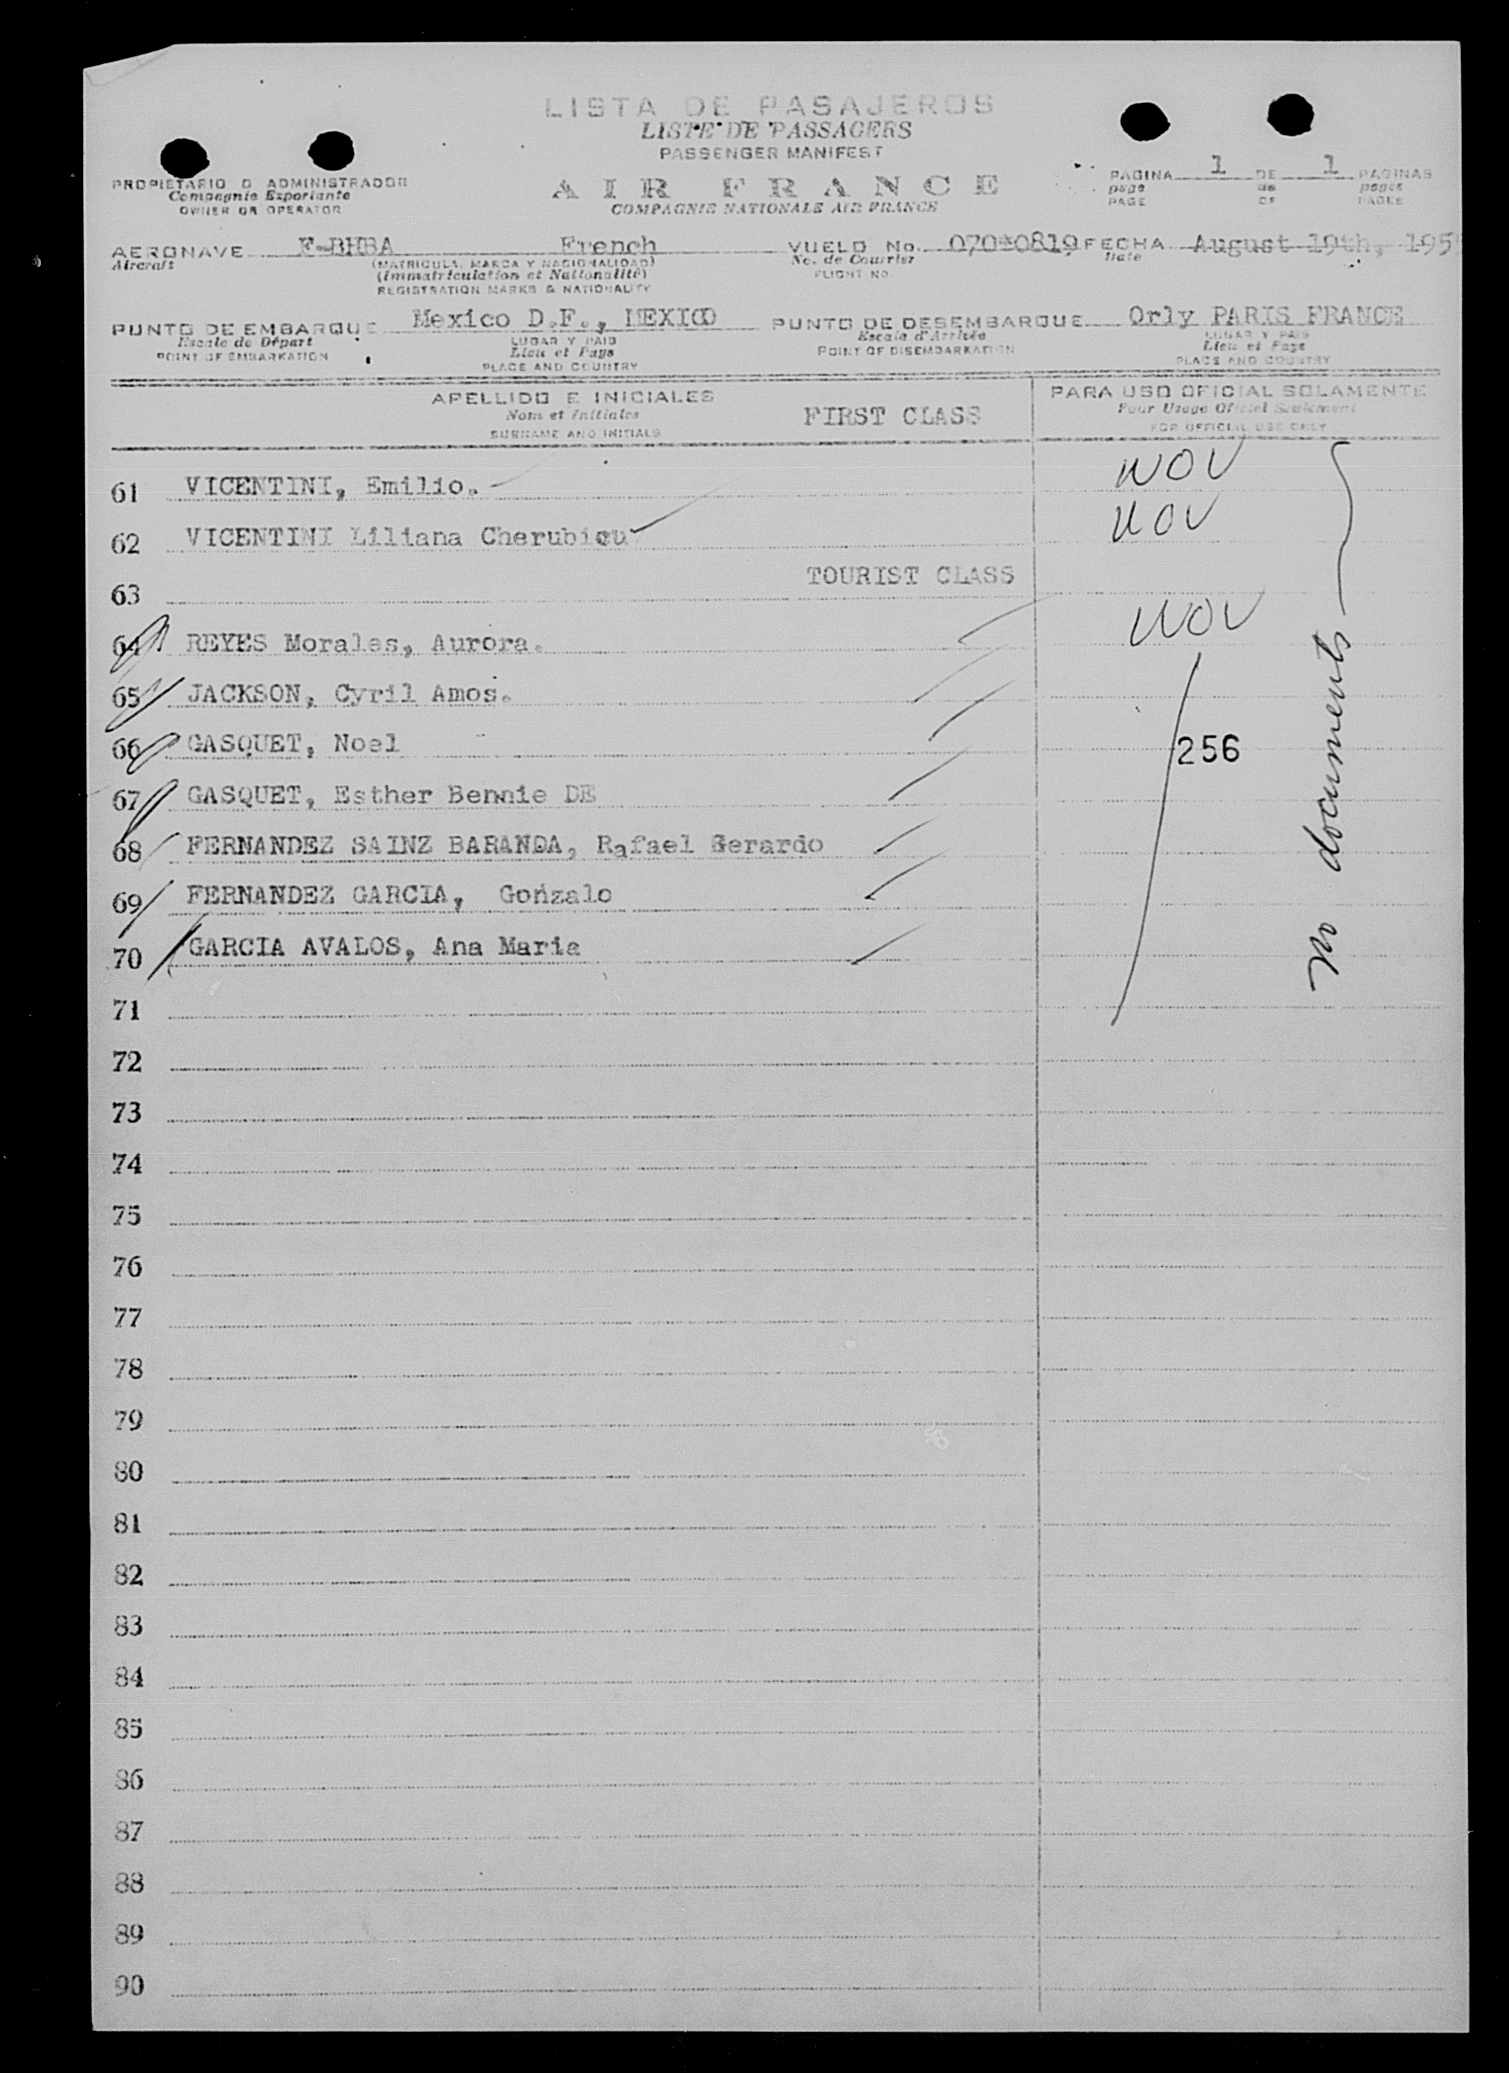 LISTA DE PASAJEROS
LISTE DE PASSAGERS
PASSENGER MANIFEST
AIR FRANCE
COMPAGNIE NATIONALE AIR FRANCE
PROPIETARIO O ADMINISTRADOR
Compagnie Exporlante
OWNER OR OPERATOR
PAGINA 1 DE 1 PAGINAS
page de pages
PAGE OF PAGES
AERONAVE F-BHBA French VUELO No. 070*0819 FECHA August 19th, 195
Aircraft (MATRICULA, MARCA Y NACIONALIDAD) No. de Courrier Date
(Immatriculation et Nationalité) FLIGHT NO.
REGISTRATION MARKS & NATIONALITY
PUNTO DE EMBARQUE Mexico D.F., MEXICO PUNTO DE DESEMBARQUE Orly PARIS FRANCE
Escale de Départ LUGAR Y PAIS Escale d'Arrivée LUGAR Y PAIS
POINT OF EMBARKATION Lieu et Pays POINT OF DISEMBARKATION Lieu et Pays
PLACE AND COUNTRY PLACE AND COUNTRY
APELLIDO E INICIALES PARA USO OFICIAL SOLAMENTE
Nom et Initiales FIRST CLASS Pour Usage Officiel Seulement
SURNAME AND INITIALS FOR OFFICIAL USE ONLY
61 VICENTINI, Emilio. NOV
62 VICENTINI Liliana NOV
63 TOURIST CLASS
64 REYES Morales, Aurora. NOV
65 JACKSON, Cyril Amos.
66 GASQUET, Noel 256
67 GASQUET, Esther Bennie DE
68 FERNANDEZ SAINZ BARANDA, Rafael Gerardo
69 FERNANDEZ GARCIA, Gonzalo
70 GARCIA AVALOS, Ana Maria
no documents
71
72
73
74
75
76
77
78
79
80
81
82
83
84
85
86
87
88
89
90